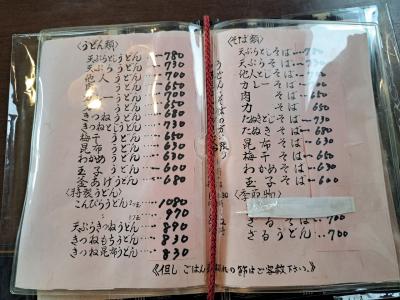 〈うどん類〉
天ぷらとじうどん ‥780
天ぷらうどん ‥730
他人うどん ‥700
うどん ‥650
ーうどん ‥700
うどん ‥650
きつねうどん ‥680
きつねとじうどん ‥730
梅干うどん ‥650
昆布うどん ‥630
わかめうどん ‥630
玉子うどん ‥600
釜あげうどん ‥680
〈特製うどん〉
こんぴらうどん ‥1080
‥970
天ぷらきつねうどん ‥890
きつねもちうどん ‥830
きつね昆布うどん ‥830
〈そば類〉
天ぷらとじそば ‥780
天ぷらそば ‥730
他人とじそば ‥700
カレーそば ‥700
肉そば ‥650
力そば ‥650
たぬきとじそば ‥730
たぬきそば ‥680
梅干そば ‥650
昆布そば ‥630
わかめそば ‥630
玉子そば ‥600
〈季節物〉
ざるそば ‥700
ざるうどん ‥700
《但し ごはん
の節はご容赦下さい。》